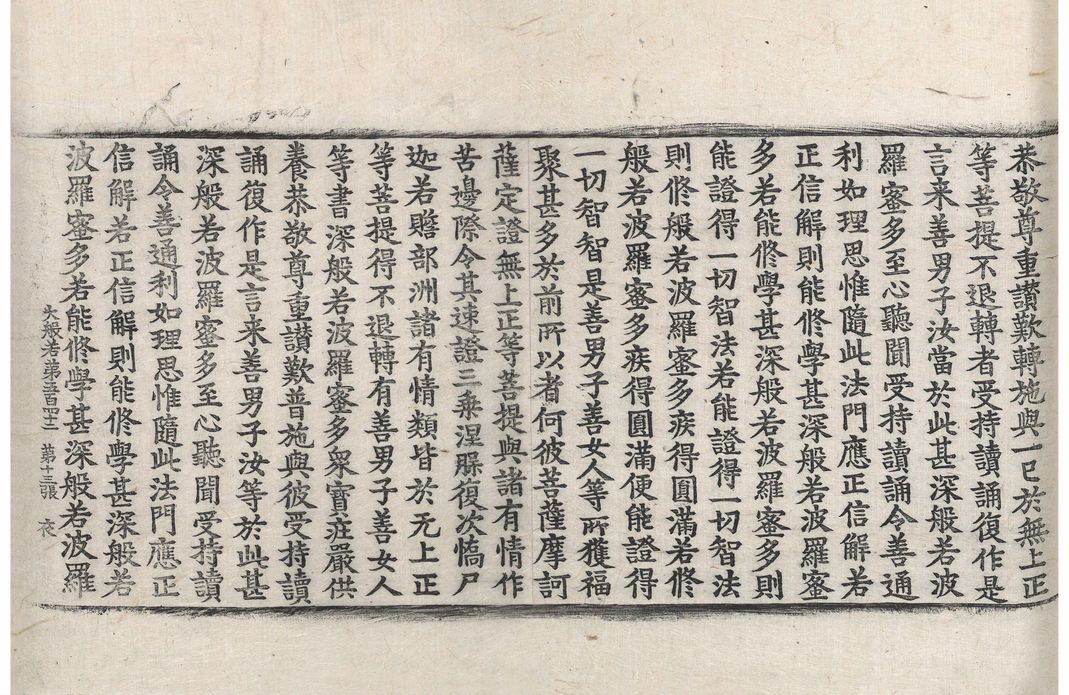 恭敬尊重讃歎轉施與一已於無上正
等菩提不退轉者受持讀誦復作是
言来善男子汝當於此甚深般若波
羅蜜多至心聽聞受持讀誦令善通
利如理思惟隨此法門應正信解若
正信解則能修學甚深般若波羅蜜
多若能修學甚深般若波羅蜜多則
能證得一切智法若能證得一切智法
則修般若波羅蜜多疾得圓滿若修
般若波羅蜜多疾得圓滿便能證得
一切智智是善男子善女人等所獲福
聚甚多於前所以者何彼菩薩摩訶
薩定證無上正等菩提與諸有情作
苦邊際令其速證三乗涅槃復次憍尸
迦若贍部洲諸有情類皆於无上正
等菩提得不退轉有善男子善女人
等書深般若波羅蜜多衆寶莊嚴供
養恭敬尊重讃歎普施與彼受持讀
誦復作是言来善男子汝等於此甚
深般若波羅蜜多至心聽聞受持讀
誦令善通利如理思惟隨此法門應正
信解若正信解則能修學甚深般若
波羅蜜多若能修學甚深般若波羅
大般若第五百四十二 第十三張 衣